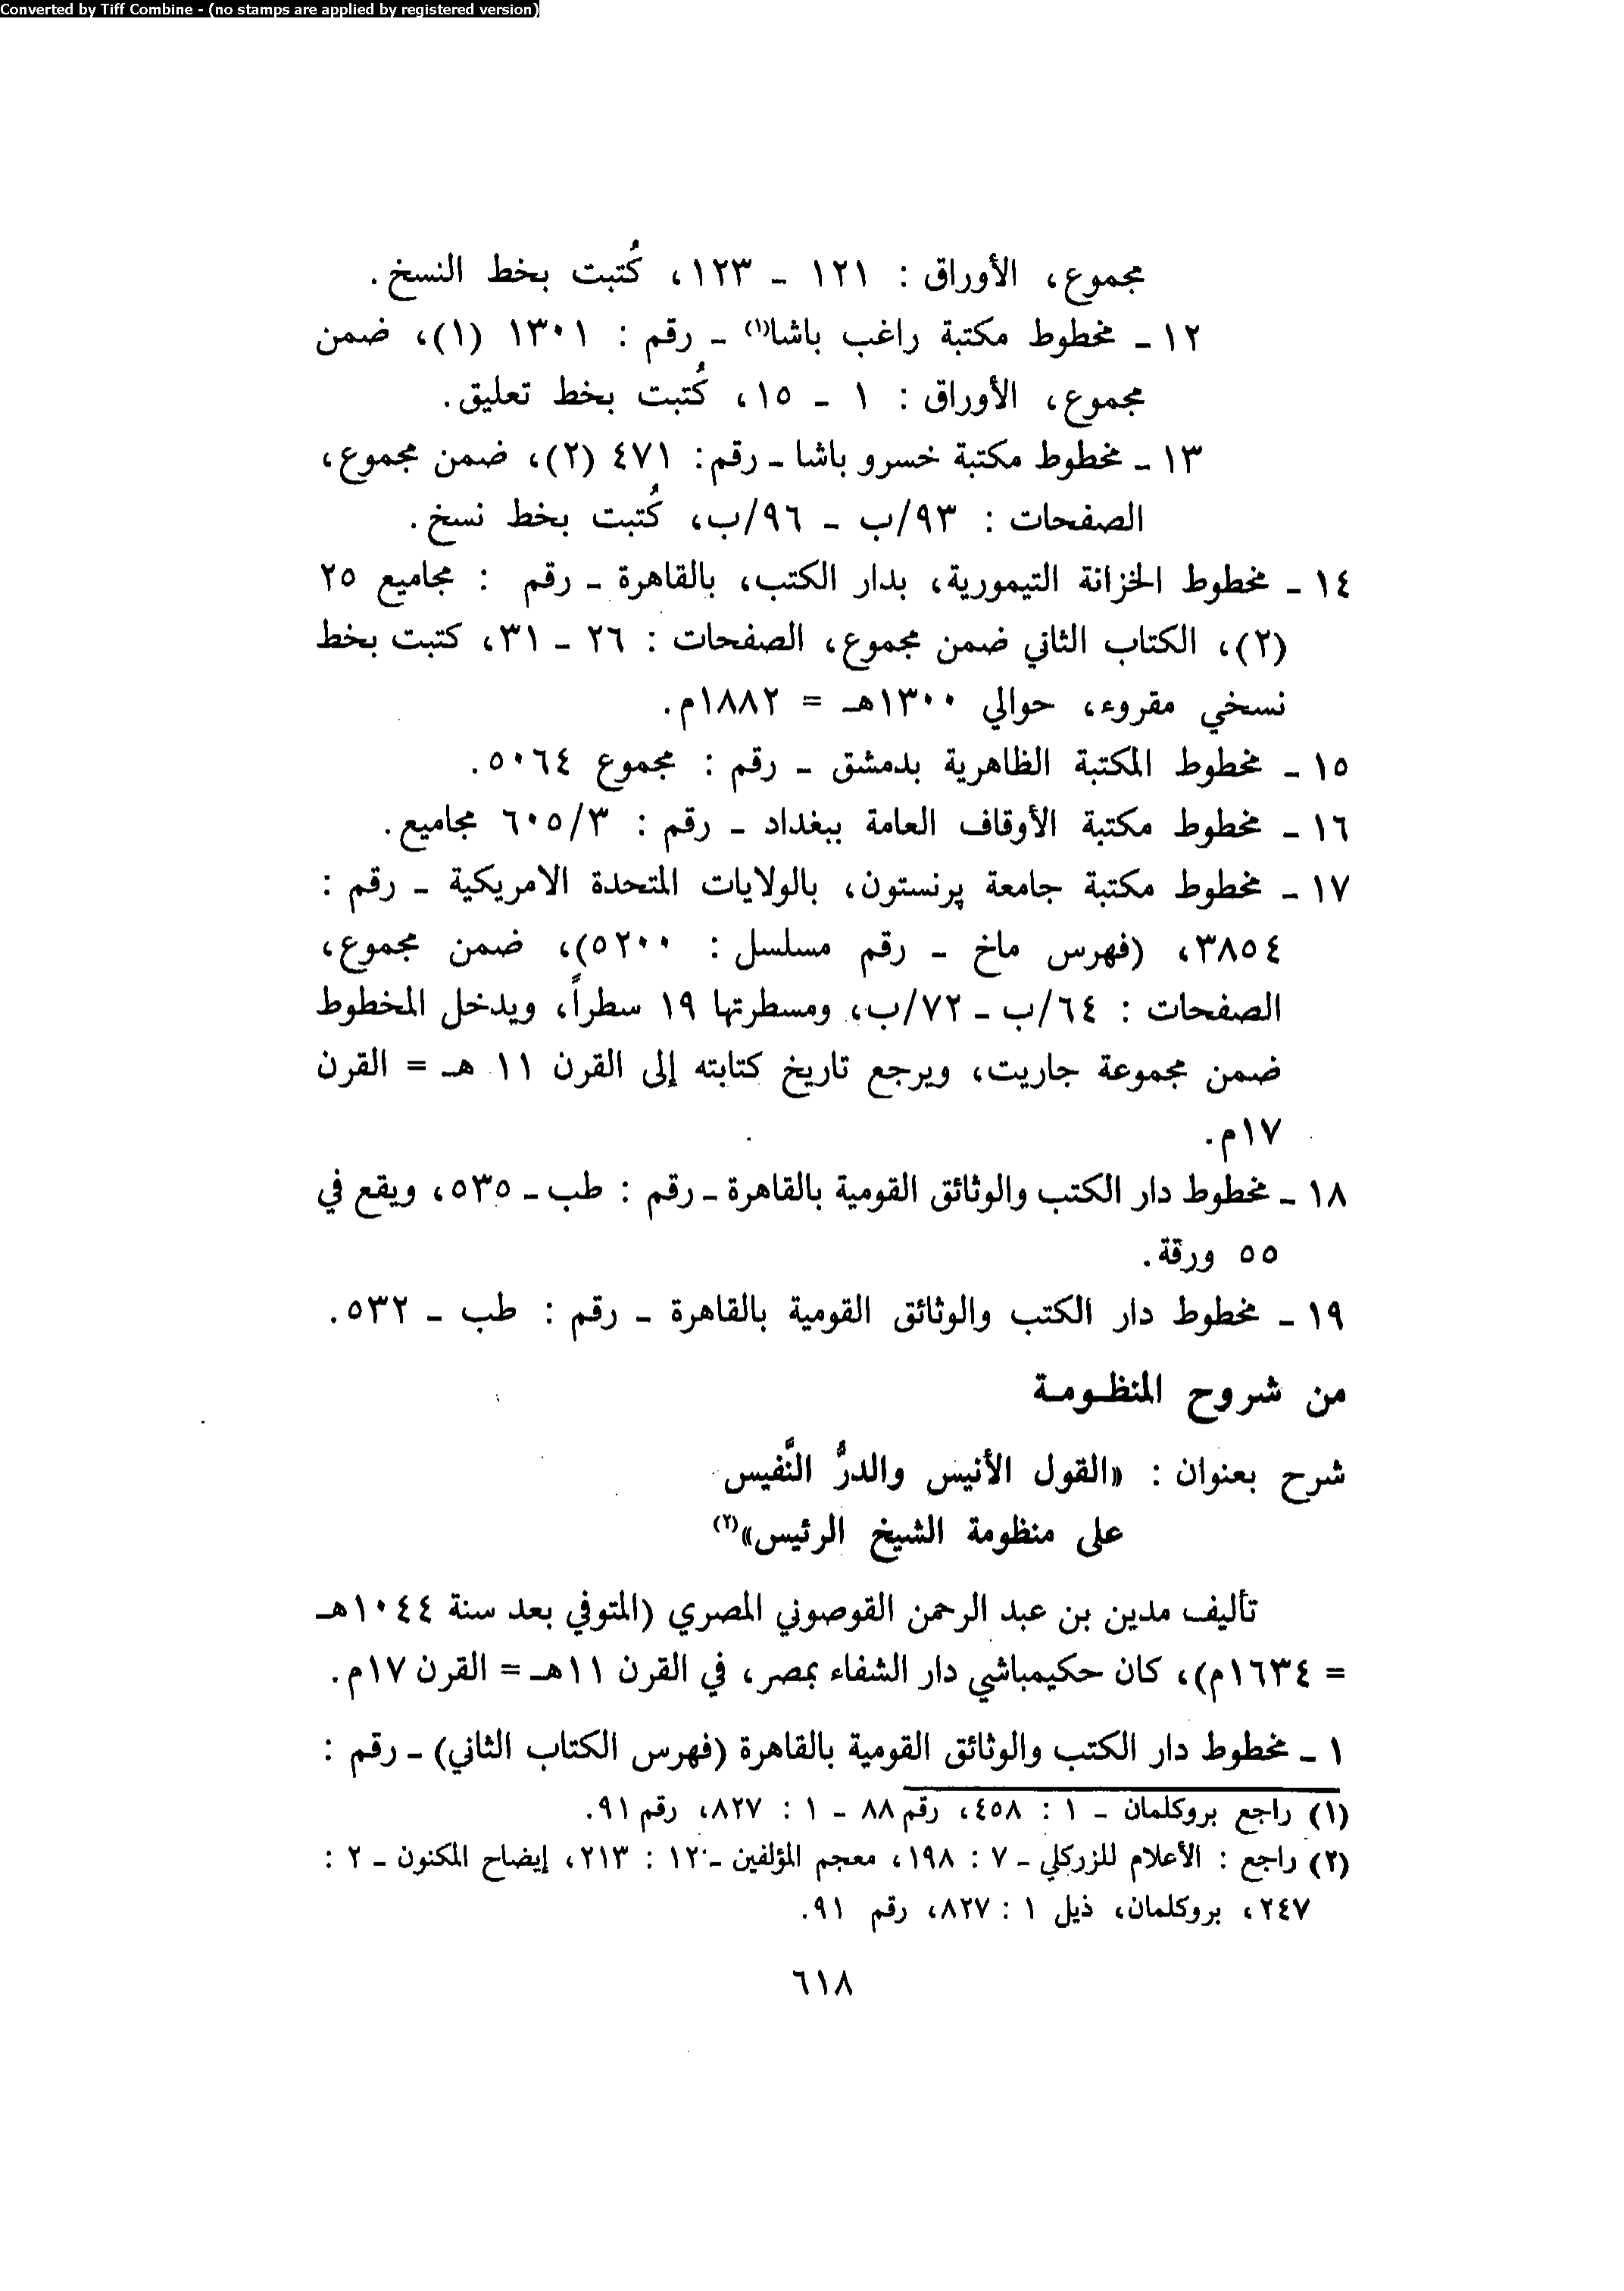 Converted by Tiff Combine - (no stamps are applied by registered version)
مجموع، الأوراق : ١٢١ - ١٢٣، كُتبت بخط النسخ.
١٢ - مخطوط مكتبة راغب باشا(١) - رقم : ١٣٠١ (١)، ضمن
مجموع، الأوراق : ١ - ١٥، كُتبت بخط تعليق.
١٣ - مخطوط مكتبة خسرو باشا - رقم: ٤٧١ (٢)، ضمن مجموع،
الصفحات : ٩٣/ب - ٩٦/ب، كُتبت بخط نسخ.
١٤ - مخطوط الخزانة التيمورية، بدار الكتب، بالقاهرة - رقم : مجاميع ٢٥
(٢)، الكتاب الثاني ضمن مجموع، الصفحات : ٢٦ - ٣١، كتبت بخط
نسخي مقروء، حوالي ١٣٠٠هـ = ١٨٨٢م.
١٥ - مخطوط المكتبة الظاهرية بدمشق - رقم : مجموع ٥٠٦٤.
١٦ - مخطوط مكتبة الأوقاف العامة ببغداد - رقم : ٦٠٥/٣ مجاميع.
١٧ - مخطوط مكتبة جامعة پرنستون، بالولايات المتحدة الامريكية - رقم :
٣٨٥٤، (فهرس ماخ - رقم مسلسل : ٥٢٠٠)، ضمن مجموع،
الصفحات : ٦٤/ب - ٧٢/ب، ومسطرتها ١٩ سطراً، ويدخل المخطوط
ضمن مجموعة جاريت، ويرجع تاريخ كتابته إلى القرن ١١ هـ = القرن
١٧م.
١٨ - مخطوط دار الكتب والوثائق القومية بالقاهرة - رقم : طب - ٥٣٥، ويقع في
٥٥ ورقة.
١٩ - مخطوط دار الكتب والوثائق القومية بالقاهرة - رقم : طب - ٥٣٢.
من شروح المنظـومـة
شرح بعنوان : «القول الأنيس والدرُّ النَّفيس
على منظومة الشيخ الرئيس»(٢)
تأليف مدين بن عبد الرحمن القوصوني المصري (المتوفي بعد سنة ١٠٤٤هـ
= ١٦٣٤م)، كان حكيمباشي دار الشفاء بمصر، في القرن ١١هـ = القرن ١٧م.
١ - مخطوط دار الكتب والوثائق القومية بالقاهرة (فهرس الكتاب الثاني) - رقم :
(١) راجع بروكلمان - ١ : ٤٥٨، رقم ٨٨ - ١ : ٨٢٧، رقم ٩١.
(٢) راجع : الأعلام للزركلي - ٧ : ١٩٨، معجم المؤلفين - ١٢ : ٢١٣، إيضاح المكنون - ٢ :
٢٤٧، بروكلمان، ذيل ١ : ٨٢٧، رقم ٩١.
٦١٨